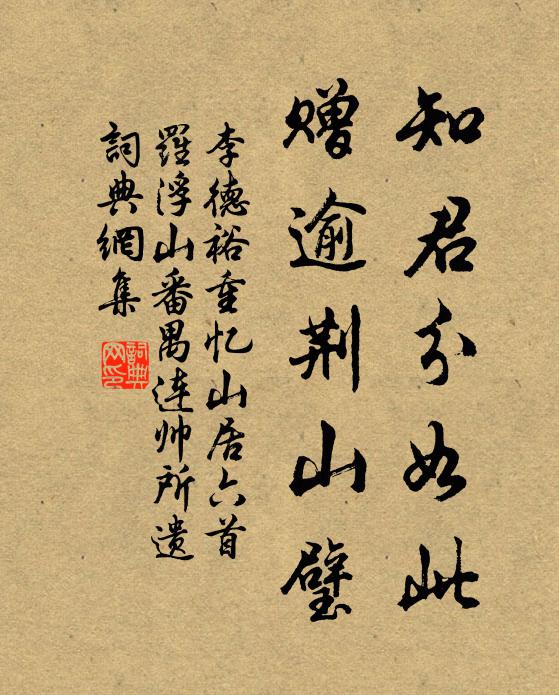 知君分如此
赠逾荆山璧
李德裕重忆山居六首
羅浮山番禺连帅所遗
詞典網集
詞典网印